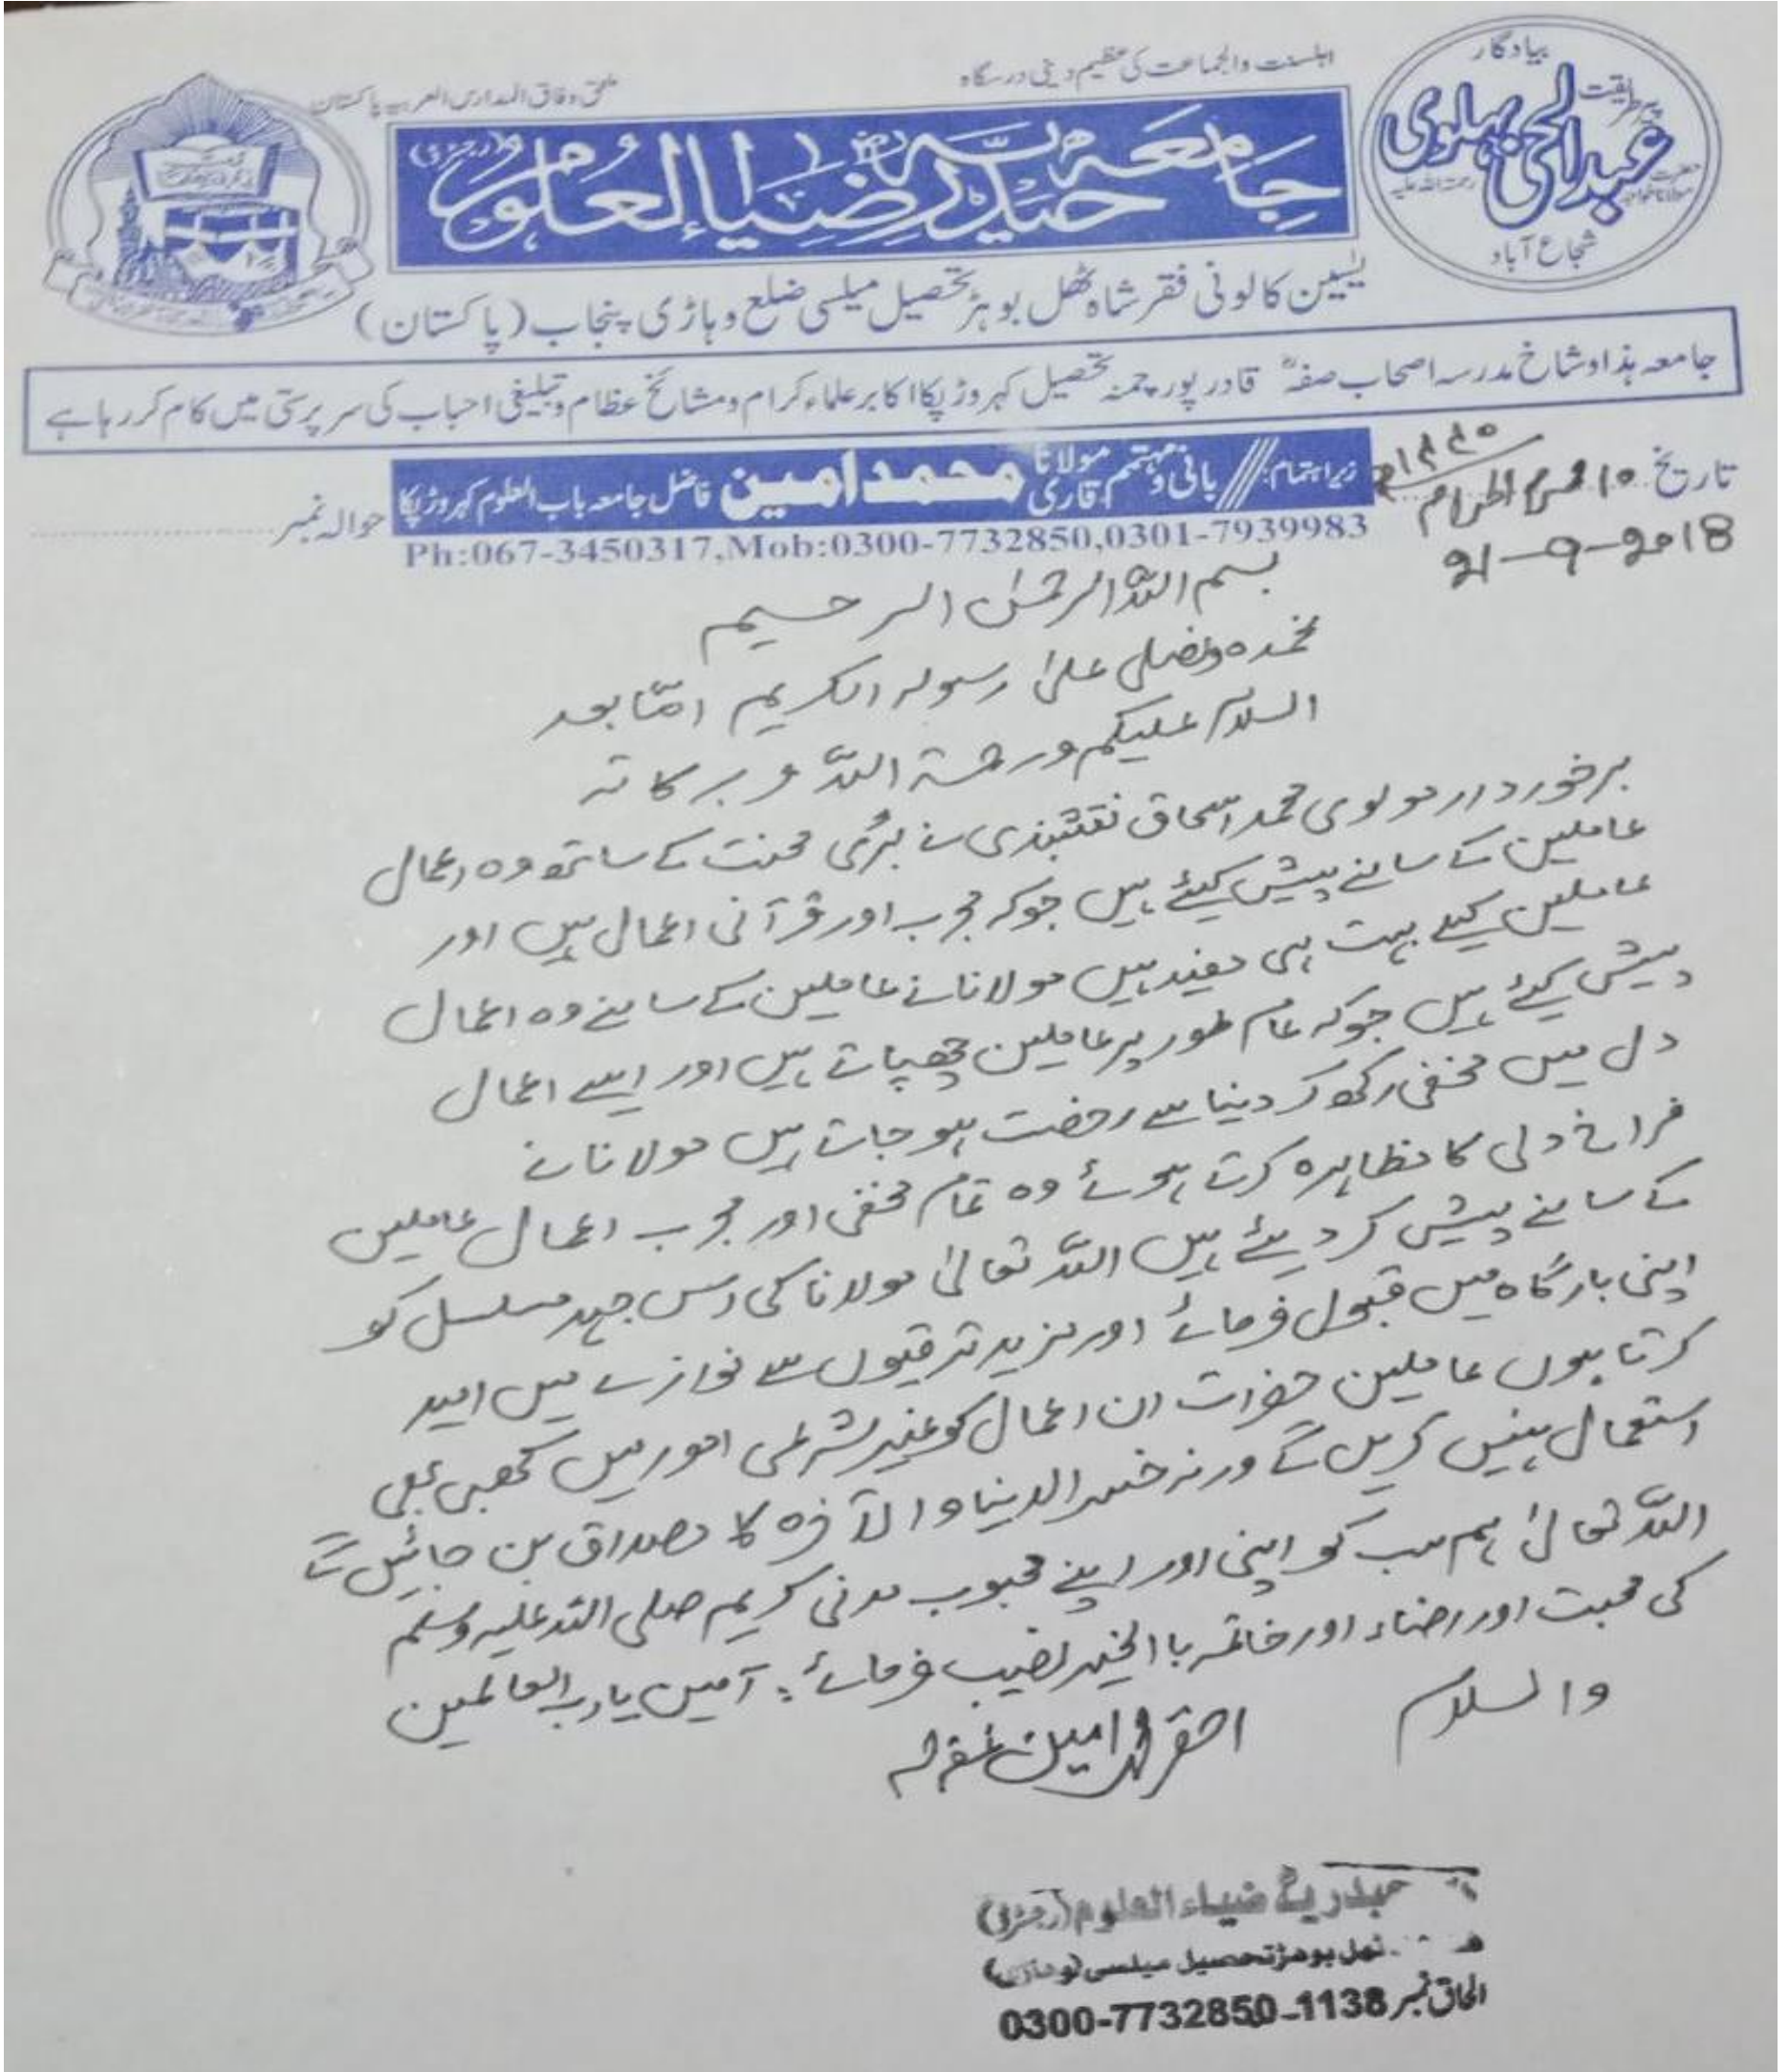 اہلسنت والجماعت کی عظیم دینی درسگاہ
ملحق وفاق المدارس العربیہ پاکستان
بیادگار
پیر طریقت
عبدالحئی بہلوی
حضرت مولانا خواجہ
رحمۃ اللہ علیہ
شجاع آباد
جامعہ حیدریہ ضیاء العلوم (رجسٹرڈ)
یٰسین کالونی فقر شاہ ٹھل بوہڑ تحصیل میلسی ضلع وہاڑی پنجاب (پاکستان)
جامعہ ہذا و شاخ مدرسہ اصحاب صفہؓ قادر پور چمنہ تحصیل کہروڑ پکا اکابر علماء کرام و مشائخ عظام و تبلیغی احباب کی سرپرستی میں کام کر رہا ہے
زیر اہتمام: بانی و مہتمم مولانا قاری محمد امین فاضل جامعہ باب العلوم کہروڑ پکا
تاریخ ۱۰ محرم الحرام ۱۴۴۰ھ
حوالہ نمبر
21-9-2018
Ph:067-3450317,Mob:0300-7732850,0301-7939983
بسم اللہ الرحمٰن الرحیم
نحمدہ ونصلی علیٰ رسولہ الکریم امّا بعد
السلام علیکم ورحمۃ اللہ وبرکاتہ
برخوردار مولوی محمد اسحاق نقشبندی نے بڑی محنت کے ساتھ وہ اعمال
عاملین کے سامنے پیش کیئے ہیں جوکہ مجرب اور قرآنی اعمال ہیں اور
عاملین کیلئے بہت ہی مفید ہیں مولانا نے عاملین کے سامنے وہ اعمال
پیش کیئے ہیں جوکہ عام طور پر عاملین چھپاتے ہیں اور ایسے اعمال
دل میں مخفی رکھ کر دنیا سے رخصت ہو جاتے ہیں مولانا نے
فراخ دلی کا مظاہرہ کرتے ہوئے وہ تمام مخفی اور مجرب اعمال عاملین
کے سامنے پیش کر دیئے ہیں اللہ تعالیٰ مولانا کی اس جہد مسلسل کو
اپنی بارگاہ میں قبول فرمائے اور مزید ترقیوں سے نوازے میں امید
کرتا ہوں عاملین حضرات ان اعمال کو غیر شرعی امور میں کبھی بھی
استعمال نہیں کریں گے ورنہ خسر الدنیا والآخرہ کا مصداق بن جائیں گے
اللہ تعالیٰ ہم سب کو اپنی اور اپنے محبوب مدنی کریم صلی اللہ علیہ وسلم
کی محبت اور رضاء اور خاتمہ باالخیر نصیب فرمائے۔ آمین یا رب العالمین
والسلام
احقر محمد امین غفرلہ
حیدریہ ضیاء العلوم (رجسٹرڈ)
ٹھل بوہڑ تحصیل میلسی (وہاڑی)
الحاق نمبر 1138-0300-7732850